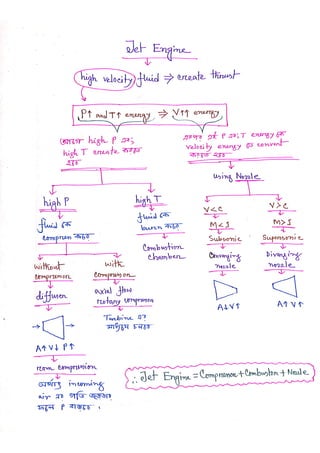 Jet Engine
high velocity fluid ⇒ create thrust
P↑ and T↑ energy ⇒ V↑↑ energy
high P এবং
high T create করতে
হবে
এই P এবং T energy কে
velocity energy তে convert
করতে হবে
using Nozzle
high P
high T
fluid কে
compress করতে
fluid কে
burn করতে
Combustion
chamber
V<C
M<1
Subsonic
Converging
nozzle
A↓V↑
V>C
M>1
Supersonic
Diverging
nozzle
A↑V↑
without
compressor
diffuser
A↑V↓P↑
ram compression
incoming
air এর গতি
P বাড়বে।
with
compressor
axial flow
rotary compressor
Turbine এর
সাহায্যে চলবে
∴ Jet Engine = Compressor + Combustor + Nozzle